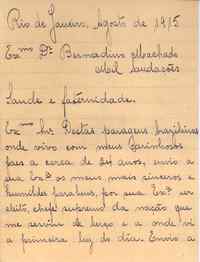 Rio de Janeiro, Agosto de 1915
Exmo Dr. Bernardino Machado
Mil saudações
Saude e fraternidade.
Exmo Snr. Destas paragens brazileiras
onde vivo com meus carinhosos
paes a cerca de 24 anos, envio a
sua Exª os meus mais sinceros e
humildes parabens, por sua Exª ser
eleito, chefe supremo da nação que
me serviu de berço e a onde vi
a primeira luz do dia. Envio a